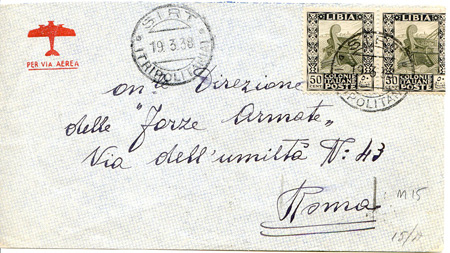 PER VIA AEREA
SIRT
19.3.38
(TRIPOLITANIA)
LIBIA
50
CENT
COLONIE
ITALIANE
POSTE
LIBIA
50
COLONIE
ITALIANE
POSTE
SIRT
On. Direzione
delle "Forze Armate"
Via dell'umiltà N. 43
Roma
M15
15/A